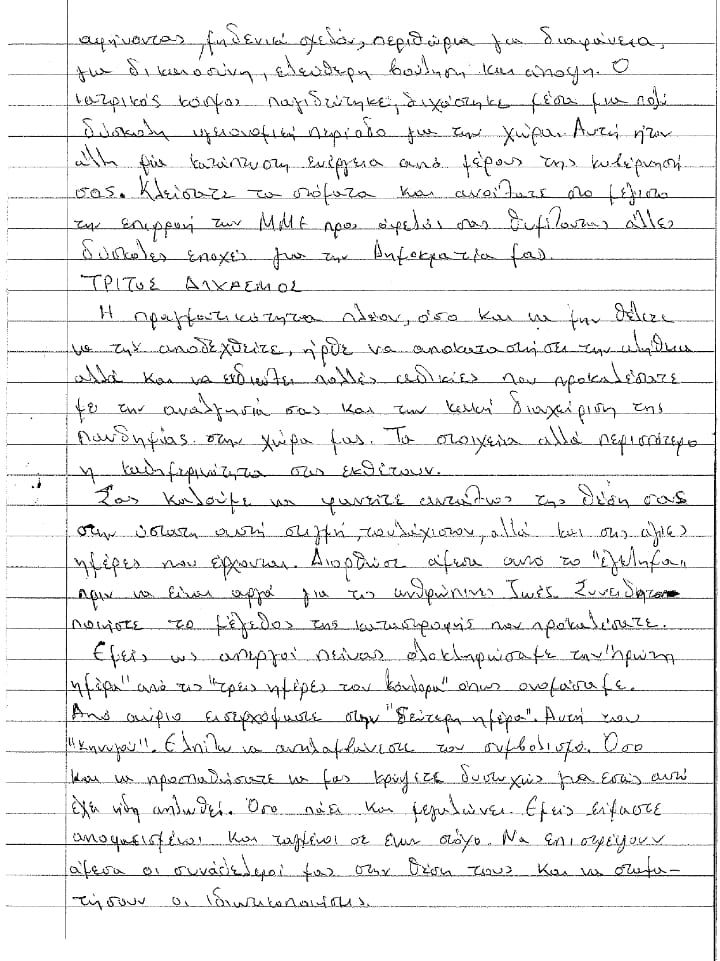 αφήνοντας μηδενικά σχεδόν, περιθώρια για διαφάνεια,
για δικαιοσύνη, ελεύθερη βούληση και άποψη. Ο
ιατρικός κόσμος παγιδεύτηκε, διχάστηκε μέσα μια πολύ
δύσκολη υγειονομική περίοδο για την χώρα. Αυτή ήταν
άλλη μία κατάπτυστη ενέργεια από μέρους της κυβέρνησή
σας. Κλείσατε τα στόματα και ανοίξατε στο μέγιστο
την επιρροή των ΜΜΕ προς όφελός σας θυμίζοντας άλλες
δύσκολες εποχές για την Δημοκρατία μας.
ΤΡΙΤΟΣ ΔΙΧΑΣΜΟΣ
Η πραγματικότητα πλέον, όσο και να μην θέλετε
να την αποδεχθείτε, ήρθε να αποκαταστήσει την αλήθεια
αλλά και να εκδιώξει πολλές αδικίες που προκαλέσατε
με την αναλγησία σας και την κακή διαχείριση της
πανδημίας στην χώρα μας. Τα στοιχεία αλλά περισσότερο
η καθημερινότητα σας εκθέτουν.
Σας καλούμε να φανείτε αντάξιος της θέση σας
στην ύστατη αυτή στιγμή, τουλάχιστον, αλλά και στις άγιες
ημέρες που έρχονται. Διορθώστε άμεσα αυτό το "έγκλημα"
πριν να είναι αργά για τις ανθρώπινες ζωές. Συνειδητο-
ποιήστε το μέγεθος της καταστροφής που προκαλέσατε.
Εμείς ως απεργοί πείνας ολοκληρώσαμε την "πρώτη
ημέρα" από τις "τρεις ημέρες του κόνδορα" όπως ονομάσαμε.
Από αύριο εισερχόμαστε στην "δεύτερη ημέρα". Αυτή του
"Κυνηγού". Ελπίζω να αντιλαμβάνεστε τον συμβολισμό. Όσο
και να προσπαθήσατε να μας κρύψετε δυστυχώς για εσάς αυτό
έχει ήδη απλωθεί. Όσο πάει και μεγαλώνει. Εμείς είμαστε
αποφασισμένοι και ταγμένοι σε έναν στόχο. Να επιστρέψουν
άμεσα οι συνάδελφοί μας στην θέση τους και να σταμα-
τήσουν οι ιδιωτικοποιήσεις.